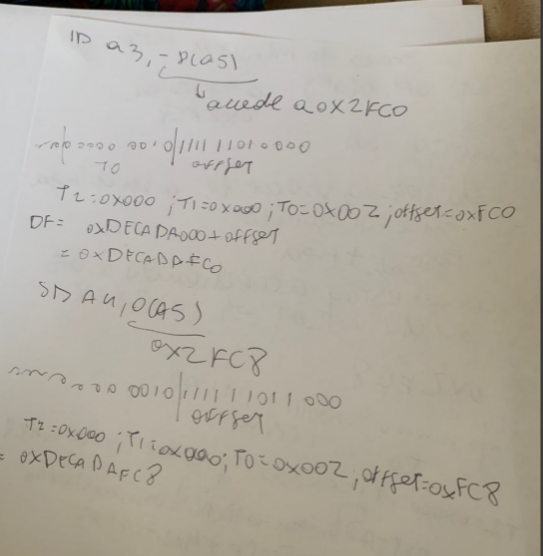 ID a3, -8(a5)
accede a 0x2FC0
0000 0010|1111 11010000
T0 offset
T2=0x000 ; T1=0x000 ; T0=0x002 ; offset=0xFC0
DF= 0xDECADA000+offset
= 0xDECADAFC0
SD A4, 0(A5)
0x2FC8
0000 0010|111111011000
offset
T2=0x000 ; T1=0x000; T0=0x002, offset=0xFC8
= 0xDECADAFC8